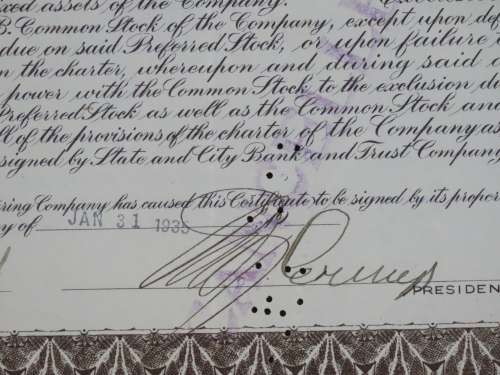 ixed assets of the Company.
B. Common Stock of the Company, except upon
due on said Preferred Stock, or upon failure
n the charter, whereupon and during said
power with the Common Stock to the exclusion
Preferred Stock as well as the Common Stock and
ll of the provisions of the charter of the Company as
signed by State and City Bank and Trust Company
ring Company has caused this Certificate to be signed by its prope
y of JAN 31 1935
PRESIDEN